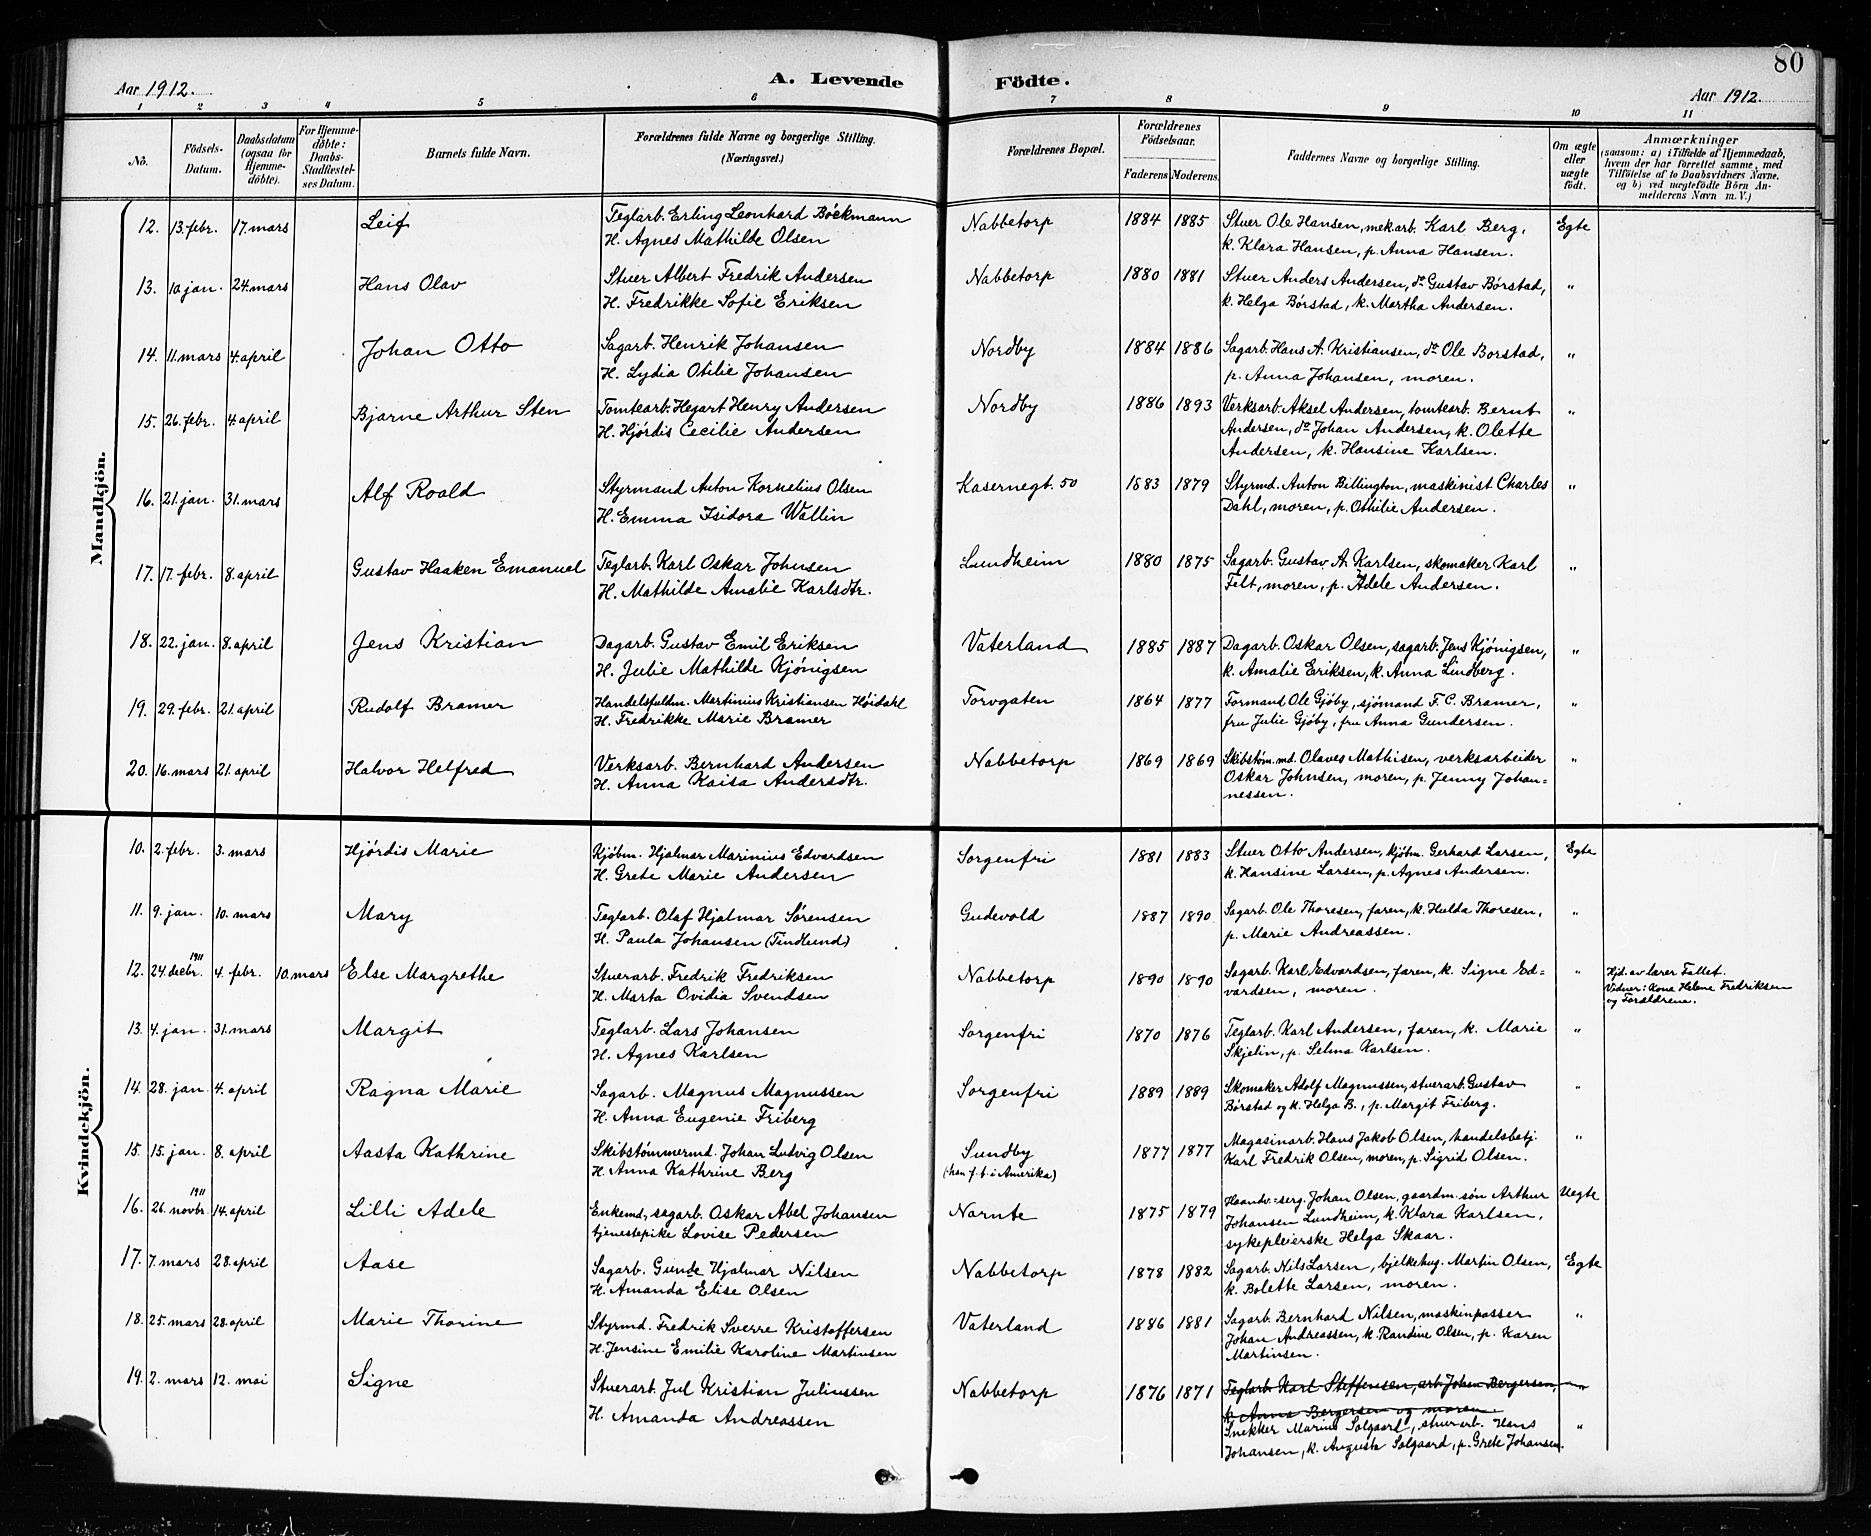 80
Aar 1912.
A. Levende Födte.
Aar 1912.
1 2 3 4 5 6 7 8 9 10 11
No.
Födsels-Datum.
Daabsdatum (ogsaa for Hjemme-döbte).
For Hjemme-döbte: Daabs-Stadfæstel-ses Datum.
Barnets fulde Navn.
Forældrenes fulde Navne og borgerlige Stilling.
(Næringsvei.)
Forældrenes Bopæl.
Forældrenes Födselsaar.
Faderens Moderens
Faddernes Navne og borgerlige Stilling.
Om ægte eller uægte födt.
Anmærkninger
(saasom: a) i Tilfælde af Hjemmedaab, hvem der har forrettet samme, med Tilföielse af to Daabsvidners Navne, og b) ved uægtefödte Börn Anmelderens Navn m. V.)
Mandkjön.
12. 13. febr. 17. mars Leif Teglarb. Erling Leonhard Böckmann Nabbetorp 1884 1885 Stuer Ole Hansen, mek.arb. Karl Berg, Egte
H. Agnes Mathilde Olsen k. Klara Hansen, p. Anna Hansen.
13. 10. jan. 24. mars Hans Olav Stuer Albert Fredrik Andersen Nabbetorp 1880 1881 Stuer Anders Andersen, do Gustav Børstad, "
H. Fredrikke Sofie Eriksen k. Helga Børstad, k. Martha Andersen.
14. 11. mars 4. april Johan Otto Sagarb. Henrik Johansen Nordby 1884 1886 Sagarb. Hans A. Kristiansen, do Ole Borstad, "
H. Lydia Otilie Johansen p. Anna Johansen, moren.
15. 26. febr. 4. april Bjarne Arthur Sten Tomtearb. Hegart Henry Andersen Nordby 1886 1893 Verksarb. Aksel Andersen, tomtearb. Bernt "
H. Hjördis Cecilie Andersen Andersen, do Johan Andersen, k. Olette
Andersen, k. Hansine Karlsen.
16. 21. jan. 31. mars Alf Roald Styrmand Anton Kornelius Olsen Kasernegt. 50 1883 1879 Styrmd. Anton Billington, maskinist Charles "
H. Emma Isidora Wallin Dahl, moren, p. Othilie Andersen.
17. 17. febr. 8. april Gustav Haaken Emanuel Teglarb. Karl Oskar Johnsen Lundheim 1880 1875 Sagarb. Gustav A. Karlsen, skomaker Karl "
H. Mathilde Amalie Karlsdtr. Felt, moren, p. Adele Andersen.
18. 22. jan. 8. april Jens Kristian Dagarb. Gustav Emil Eriksen Vaterland 1885 1887 Dagarb. Oskar Olsen, sagarb. Jens Kjönigsen, "
H. Julie Mathilde Kjönigsen k. Amalie Eriksen, k. Anna Lindberg.
19. 29. febr. 21. april Rudolf Bramer Handelsfuldm. Martinius Kristiansen Höidahl Torvgaten 1864 1877 Formand Ole Gjöby, sjömand F. C. Bramer, "
H. Fredrikke Marie Bramer fru Julie Gjöby, fru Anna Gundersen.
20. 16. mars 21. april Halvor Helfred Verksarb. Bernhard Andersen Nabbetorp 1869 1869 Skibstöm.md. Olaves Mathisen, verksarbeider "
H. Anna Kaisa Andersdtr. Oskar Johnsen, moren, p. Jenny Johan-
nessen.
Kvindekjön.
10. 2. febr. 3. mars Hjördis Marie Kjöbm. Hjalmar Marinius Edvardsen Sorgenfri 1881 1883 Stuer Otto Andersen, kjöbm. Gerhard Larsen, Egte
H. Grete Marie Andersen k. Hansine Larsen, p. Agnes Andersen.
11. 9. jan. 10. mars Mary Teglarb. Olaf Hjalmar Sörensen Gudevold 1887 1890 Sagarb. Ole Thoresen, faren, k. Hulda Thoresen, "
H. Paula Johansen (Tindlund) p. Marie Andreassen.
12. 24. decbr. 1911 4. febr. 10. mars Else Margrethe Stuerarb. Fredrik Fredriksen Nabbetorp 1890 1890 Sagarb. Karl Edvardsen, faren, k. Signe Ed- " Hjd. av lærer Fallet.
H. Marta Ovidia Svendsen vardsen, moren. Vidner: Kona Helene Fredriksen
og Forældrene.
13. 4. jan. 31. mars Margit Teglarb. Lars Johansen Sorgenfri 1870 1876 Teglarb. Karl Andersen, faren, k. Marie "
H. Agnes Karlsen Skjelin, p. Selma Karlsen.
14. 28. jan. 4. april Ragna Marie Sagarb. Magnus Magnussen Sorgenfri 1889 1889 Skomaker Adolf Magnussen, stuerarb. Gustav "
H. Anna Eugenie Friberg Börstad og k. Helga B., p. Margit Friberg.
15. 15. jan. 8. april Aasta Kathrine Skibstömmermd. Johan Ludvig Olsen Sundby 1877 1877 Magasinarb. Hans Jakob Olsen, handelsbetj. "
H. Anna Kathrine Berg (han f. t. i Amerika) Karl Fredrik Olsen, moren, p. Sigrid Olsen.
16. 26. novbr. 1911 14. april Lilli Adele Enkemd., sagarb. Oskar Abel Johansen Nornte 1875 1879 Haandv.=serg. Johan Olsen, gaardm. sön Arthur Uegte
tjenestepike Lovise Pedersen Johansen Lundheim, k. Klara Karlsen,
sykepleierske Helga Skaar.
17. 7. mars 28. april Aase Sagarb. Gunde Hjalmar Nilsen Nabbetorp 1878 1882 Sagarb. Nils Larsen, bjelkehug. Martin Olsen, Egte
H. Amanda Elise Olsen k. Bolette Larsen, moren.
18. 25. mars 28. april Marie Thorine Styrmd. Fredrik Sverre Kristoffersen Vaterland 1886 1881 Sagarb. Bernhard Nilsen, maskinpasser "
H. Jensine Emilie Karoline Martinsen Johan Andreassen, k. Randine Olsen, p. Karen
Martinsen.
19. 2. mars 12. mai Signe Stuerarb. Jul Kristian Juliussen Nabbetorp 1876 1871 Teglarb. Karl Steffensen, arb. Johan Bergersen, "
H. Amanda Andreassen k. Anna Bergersen og moren.
Snekker Marius Solgaard, stuerarb. Hans "
Johansen, k. Augusta Solgaard, p. Grete Johansen.